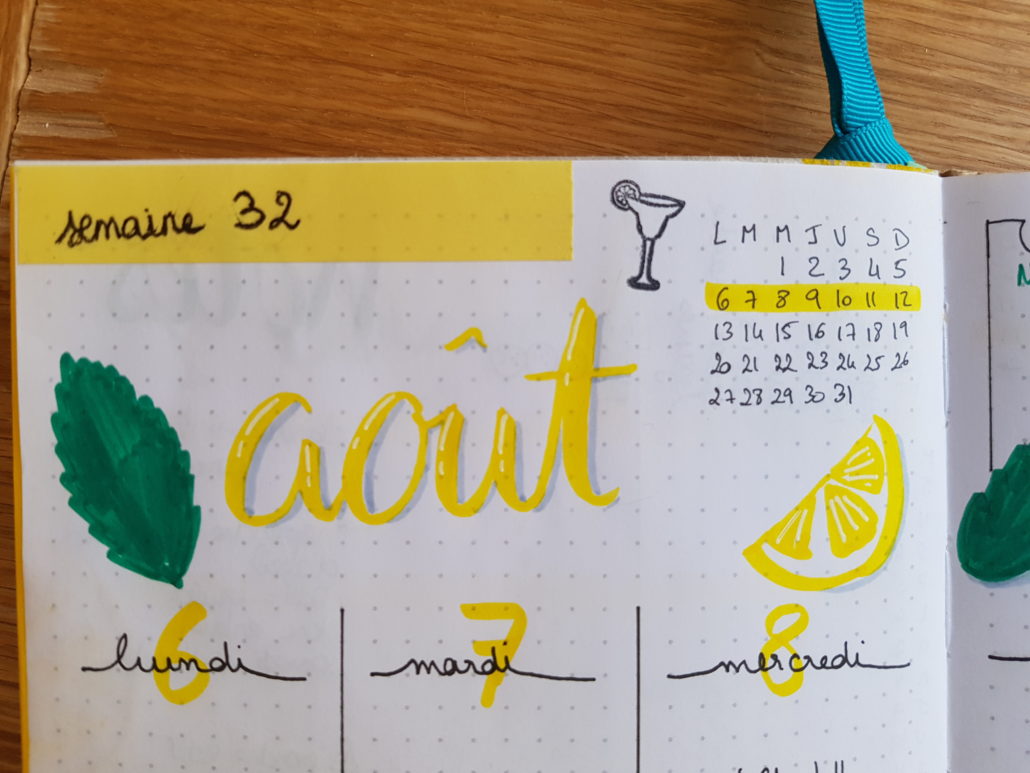 semaine 32
L M M J V S D
1 2 3 4 5
6 7 8 9 10 11 12
13 14 15 16 17 18 19
20 21 22 23 24 25 26
27 28 29 30 31
août
6 7 8
lundi mardi mercredi